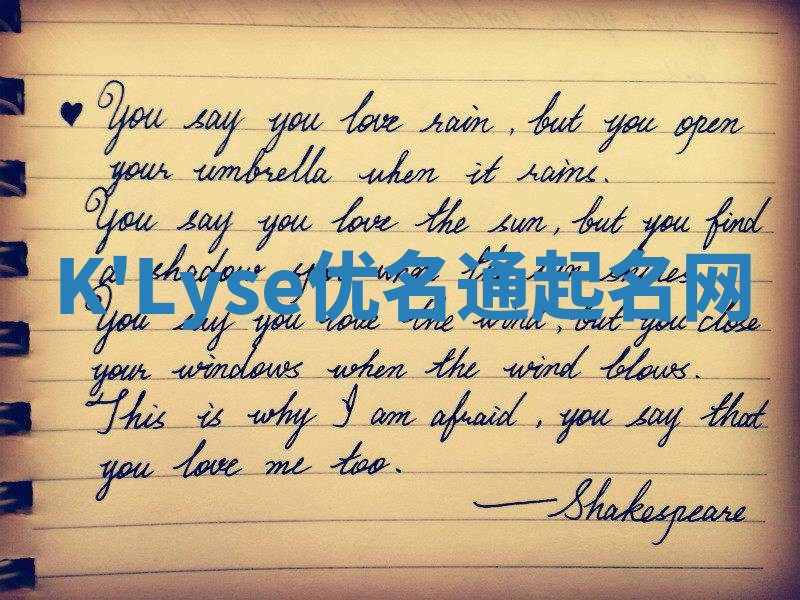 ♥ You say you love rain, but you open
your umbrella when it rains.
You say you love the sun, but you find
a shadow spot when the sun shines.
K'Lyse优名通起名网
You say you love the wind, but you close
your windows when the wind blows.
This is why I am afraid, you say that
you love me too.
—Shakespeare